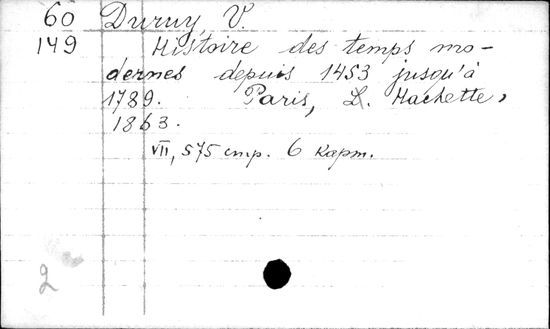 60 Duruy, V.
149 Histoire des temps mo-
dernes depuis 1453 jusqu'à
1789. Paris, L. Hachette,
1863.
VII, 575 стр. 6 карт.
2